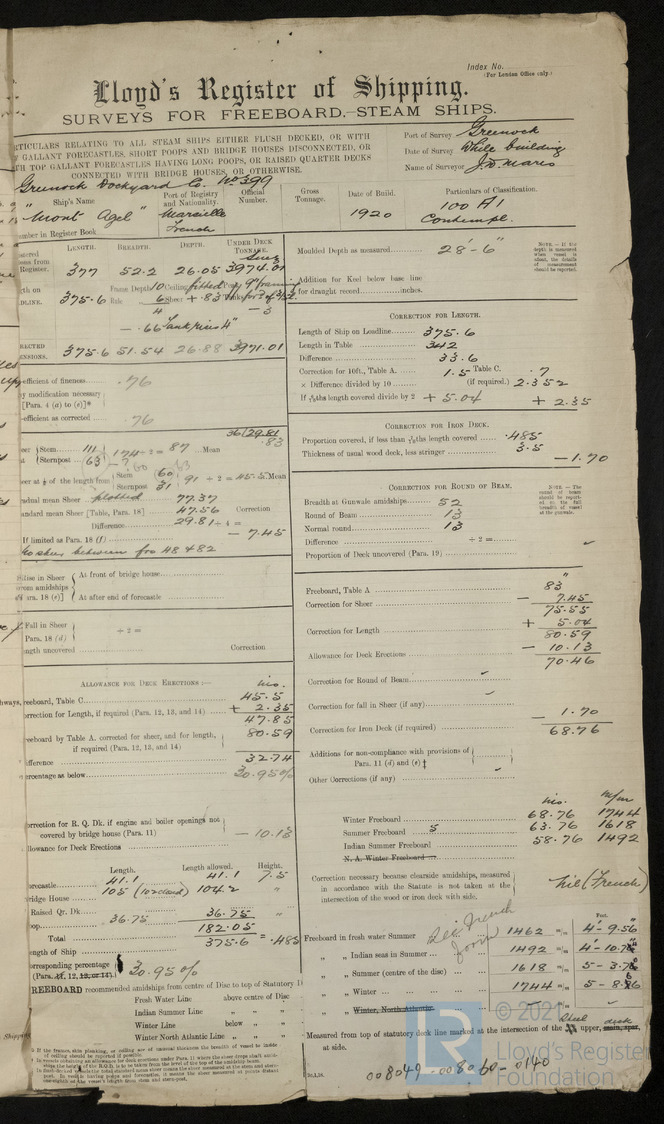 Index No.
(For London Office only.)
Lloyd's Register of Shipping.
SURVEYS FOR FREEBOARD.-STEAM SHIPS.
TICULARS RELATING TO ALL STEAM SHIPS EITHER FLUSH DECKED, OR WITH
GALLANT FORECASTLES, SHORT POOPS AND BRIDGE HOUSES DISCONNECTED, OR
TH TOP GALLANT FORECASTLES HAVING LONG POOPS, OR RAISED QUARTER DECKS
CONNECTED WITH BRIDGE HOUSES, OR OTHERWISE.
Port of Survey Greenock
Date of Survey While building
Name of Surveyor
Greenock Dockyard Co. No 399
Ship's Name
Port of Registry and Nationality.
Official Number.
Gross Tonnage.
Date of Build.
Particulars of Classification.
"Mont Agel"
Marseille
French
1920
100 A1
Contempl.
umber in Register Book
LENGTH. BREADTH. DEPTH. UNDER DECK TONNAGE.
Register. 377 52.2 26.05 3974.01
DLINE. 375.6
Frame Depth 10 Ceiling fitted
6 Sheer + .83
4 - 3
- .66
375.6 51.54 26.88 3971.01
efficient of fineness .76
y modification necessary
[Para. 4 (a) to (e)]*
efficient as corrected .76
36/29.81
.83
Stem 111
Sternpost 63
174 ÷ 2 = 87 Mean
eer at ⅛ of the length from
Stem 60
Sternpost 31
91 ÷ 2 = 45.5 Mean
adual mean Sheer plotted 77.37
andard mean Sheer [Table, Para. 18] 47.56 Correction
Difference 29.81 ÷ 4 =
- 7.45
If limited as Para. 18 (f)
No sheer between fro 48 & 82
Rise in Sheer
from amidships
Para. 18 (e)]
At front of bridge house
At after end of forecastle
Fall in Sheer
Para. 18 (d)
÷ 2 =
ngth uncovered Correction
ALLOWANCE FOR DECK ERECTIONS :—
ins.
reeboard, Table C 45.5
rrection for Length, if required (Para. 12, 13, and 14) + 2.35
47.85
eeboard by Table A. corrected for sheer, and for length,
if required (Para. 12, 13, and 14) 80.59
fference 32.74
ercentage as below 30.95%
orrection for R. Q. Dk. if engine and boiler openings not
covered by bridge house (Para. 11)
- 10.13
llowance for Deck Erections
Length. Length allowed. Height.
orecastle 41.1 41.1 7.5
ridge House 105 104.2 "
Raised Qr. Dk.
oop 36.75 36.75 "
Total 182.05
ength of Ship 375.6 = .485
orresponding percentage
(Para. 11, 12, 13, or 14) 30.95%
REEBOARD recommended amidships from centre of Disc to top of Statutory D
Fresh Water Line above centre of Disc
Indian Summer Line " "
Winter Line below " "
Winter North Atlantic Line " "
Moulded Depth as measured 28'-6"
NOTE.—If the depth is measured when vessel is afloat, the details of measurement should be reported.
Addition for Keel below base line
for draught record inches.
CORRECTION FOR LENGTH.
Length of Ship on Loadline 375.6
Length in Table 342
Difference 33.6
Correction for 10ft., Table A. 1.5 Table C. .7
× Difference divided by 10 (if required.) 2.352
If ⁶⁄₁₀ths length covered divide by 2 + 5.04 + 2.35
CORRECTION FOR IRON DECK.
Proportion covered, if less than ⁷⁄₁₀ths length covered .485
Thickness of usual wood deck, less stringer 3.5
- 1.70
CORRECTION FOR ROUND OF BEAM.
Breadth at Gunwale amidships 52
Round of Beam 13
Normal round 13
Difference ÷ 2 =
Proportion of Deck uncovered (Para. 19)
NOTE.—The round of beam should be reported to the full breadth of vessel at the gunwale.
Freeboard, Table A 83"
Correction for Sheer - 7.45
75.55
Correction for Length + 5.04
80.59
Allowance for Deck Erections - 10.13
70.46
Correction for Round of Beam
Correction for fall in Sheer (if any)
Correction for Iron Deck (if required) - 1.70
68.76
Additions for non-compliance with provisions of
Para. 11 (d) and (e) †
Other Corrections (if any)
ins. m/m
Winter Freeboard 68.76 1744
Summer Freeboard 5 63.76 1618
Indian Summer Freeboard 58.76 1492
N. A. Winter Freeboard
Correction necessary because clearside amidships, measured
in accordance with the Statute is not taken at the
intersection of the wood or iron deck with side.
Nil (French)
See French form
Feet.
Freeboard in fresh water Summer 1462 m/m 4'-9.56"
" " Indian seas in Summer 1492 m/m
" " Summer (centre of the disc) 1618 m/m
" " Winter 1744 m/m
" " Winter, North Atlantic
Measured from top of statutory deck line marked at the intersection of the Steel upper, deck
at side.
008049-008060-0140
© 2021
Lloyd's Register
Foundation